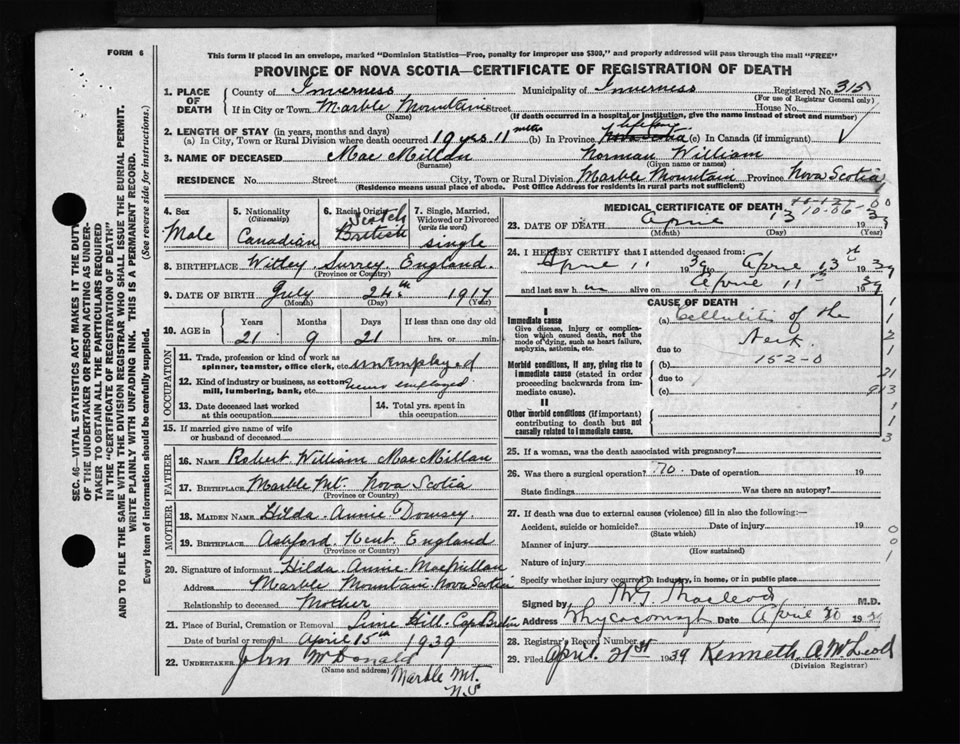 FORM 6
This form if placed in an envelope, marked "Dominion Statistics—Free, penalty for improper use $300," and properly addressed will pass through the mail "FREE"
PROVINCE OF NOVA SCOTIA—CERTIFICATE OF REGISTRATION OF DEATH
SEC. 46—VITAL STATISTICS ACT MAKES IT THE DUTY
OF THE UNDERTAKER OR PERSON ACTING AS UNDER-
TAKER TO OBTAIN ALL THE PARTICULARS REQUIRED
IN THE "CERTIFICATE OF REGISTRATION OF DEATH"
AND TO FILE THE SAME WITH THE DIVISION REGISTRAR WHO SHALL ISSUE THE BURIAL PERMIT.
WRITE PLAINLY WITH UNFADING INK. THIS IS A PERMANENT RECORD.
Every item of information should be carefully supplied. (See reverse side for instructions.)
1. PLACE OF DEATH County of Inverness Municipality of Inverness Registered No. 315
(For use of Registrar General only)
If in City or Town Marble Mountain Street House No.
(Name) (If death occurred in a hospital or institution, give the name instead of street and number)
2. LENGTH OF STAY (in years, months and days)
(a) In City, Town or Rural Division where death occurred 19 yrs. 11 mths (b) In Province lifelong Nova Scotia (c) In Canada (if immigrant)
3. NAME OF DECEASED MacMillan Norman William
(Surname) (Given name or names)
RESIDENCE No. Street City, Town or Rural Division Marble Mountain Province Nova Scotia
(Residence means usual place of abode. Post Office Address for residents in rural parts not sufficient)
4. Sex Male
5. Nationality (Citizenship) Canadian
6. Racial Origin Scotch British
7. Single, Married, Widowed or Divorced (write the word) single
8. BIRTHPLACE Witley, Surrey, England.
(Province or Country)
9. DATE OF BIRTH July 24th 1917
(Month) (Day) (Year)
10. AGE in Years Months Days If less than one day old
21 9 21 hrs. or min.
OCCUPATION
11. Trade, profession or kind of work as spinner, teamster, office clerk, etc. unemployed
12. Kind of industry or business, as cotton mill, lumbering, bank, etc. never employed
13. Date deceased last worked at this occupation
14. Total yrs. spent in this occupation
15. If married give name of wife or husband of deceased
FATHER
16. NAME Robert William MacMillan
17. BIRTHPLACE Marble Mt. Nova Scotia
(Province or Country)
MOTHER
18. MAIDEN NAME Hilda Annie Dowsey
19. BIRTHPLACE Ashford. Kent. England
(Province or Country)
20. Signature of informant Hilda Annie MacMillan
Address Marble Mountain. Nova Scotia
Relationship to deceased Mother
21. Place of Burial, Cremation or Removal Lime Hill. Cape Breton
Date of burial or removal April 15th 1939
22. UNDERTAKER John McDonald
(Name and address) Marble Mt.
N.S
MEDICAL CERTIFICATE OF DEATH
10-06-00
23. DATE OF DEATH April 13 1939
(Month) (Day) (Year)
24. I HEREBY CERTIFY that I attended deceased from
April 11 1939 to April 13th 1939
and last saw him alive on April 11th 1939
CAUSE OF DEATH
I
Immediate cause (a) Cellulitis of the
Give disease, injury or complication which caused death, not the mode of dying, such as heart failure, asphyxia, asthenia, etc.
Neck
due to 152-0
Morbid conditions, if any, giving rise to immediate cause (stated in order proceeding backwards from immediate cause). (b)
due to
(c)
II
Other morbid conditions (if important) contributing to death but not causally related to immediate cause.
25. If a woman, was the death associated with pregnancy?
26. Was there a surgical operation? No. Date of operation 19
State findings Was there an autopsy?
27. If death was due to external causes (violence) fill in also the following:—
Accident, suicide or homicide? Date of injury 19
(State which)
Manner of injury
(How sustained)
Nature of injury
Specify whether injury occurred in industry, in home, or in public place
Signed by Macleod M.D.
Address Whycocomagh Date April 20 19
28. Registrar's Record Number
29. Filed April 21st 1939 Kenneth A McLeod
(Division Registrar)